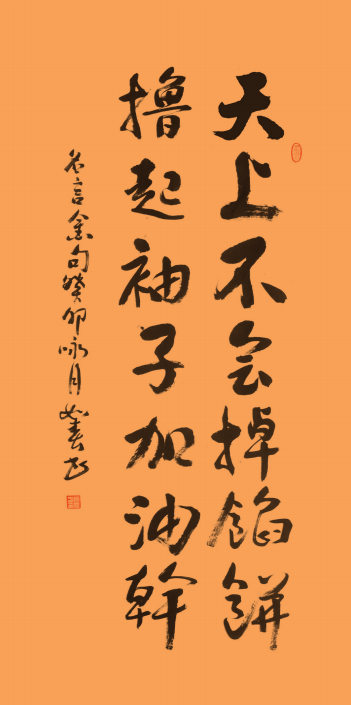 天上不会掉馅餅
撸起袖子加油幹
名言金句癸卯咏月如春书